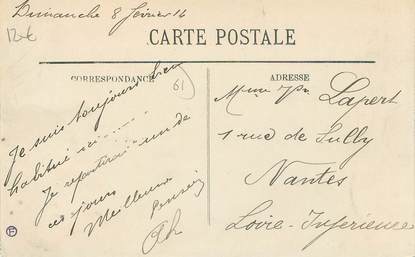 Dimanche 8 février 16
12€
CARTE POSTALE
CORRESPONDANCE
ADRESSE
61
Je suis toujours bien
habitué ici
Je repartirai un de
ces jours
Meilleures pensées
Mme Lapert
1 rue de Sully
Nantes
Loire-Inférieure